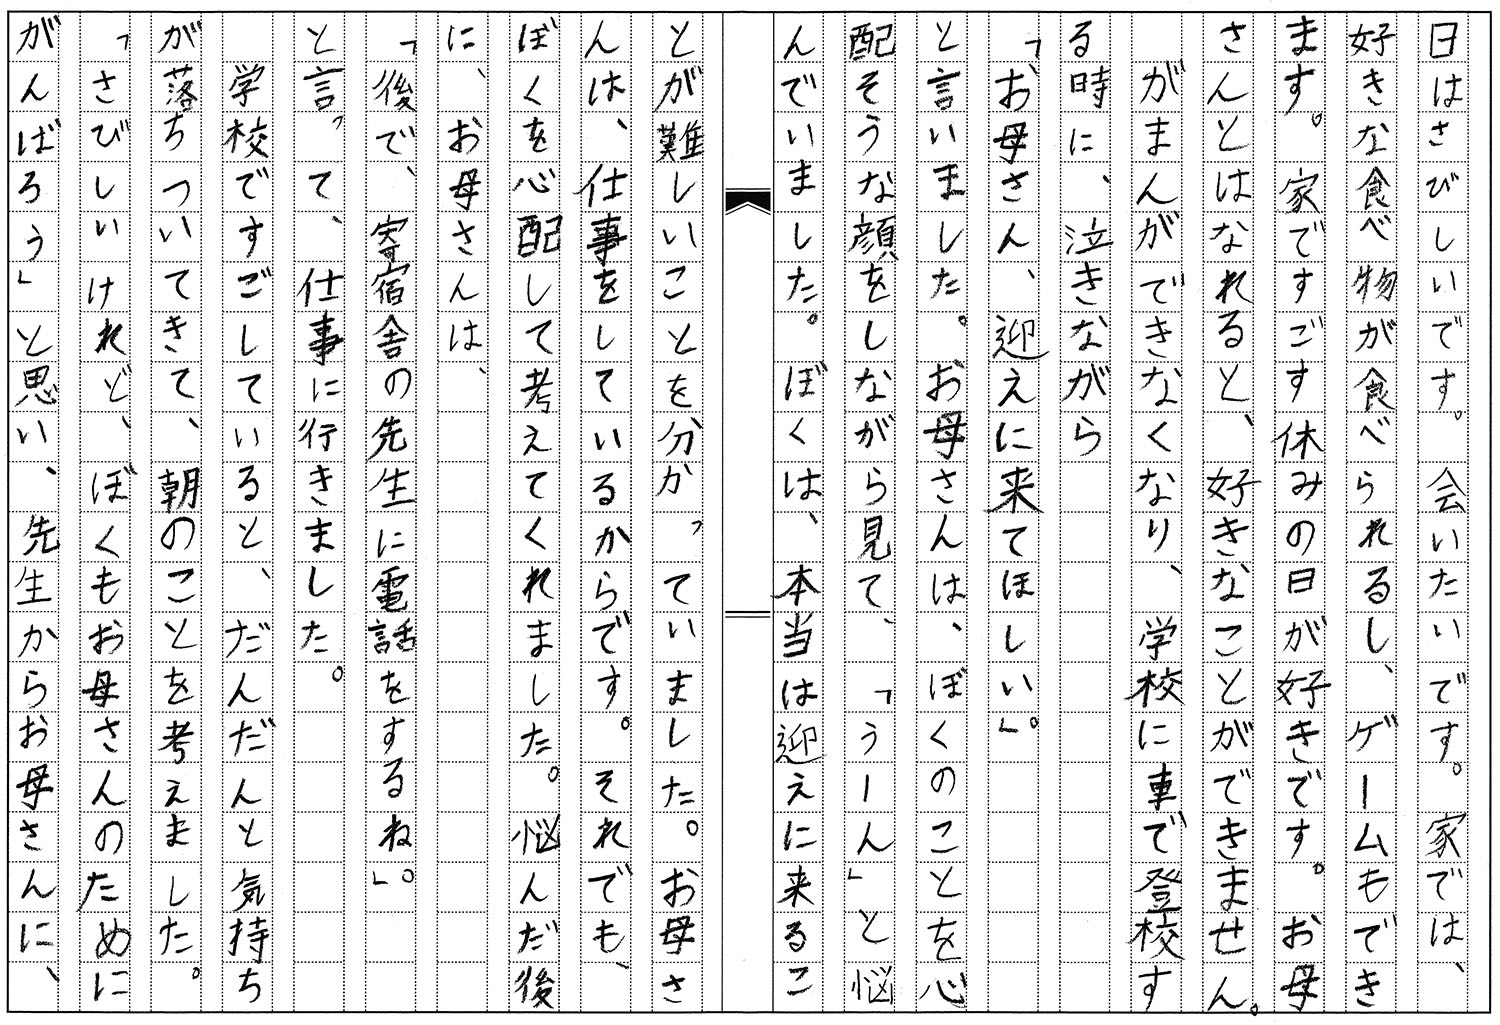 日はさびしいです。会いたいです。家では、
好きな食べ物が食べられるし、ゲームもでき
ます。家ですごす休みの日が好きです。お母
さんとはなれると、好きなことができません。
がまんができなくなり、学校に車で登校す
る時に、泣きながら
「お母さん、迎えに来てほしい」。
と言いました。お母さんは、ぼくのことを心
配そうな顔をしながら見て、「うーん」と悩
んでいました。ぼくは、本当は迎えに来るこ
とが難しいことを、分かっていました。お母さ
んは、仕事をしているからです。それでも、
ぼくを心配して考えてくれました。悩んだ後
に、お母さんは、
「後で、寄宿舎の先生に電話をするね」。
と言って、仕事に行きました。
学校ですごしていると、だんだんと気持ち
が落ちついてきて、朝のことを考えました。
「さびしいけれど、ぼくもお母さんのために
がんばろう」と思い、先生からお母さんに、